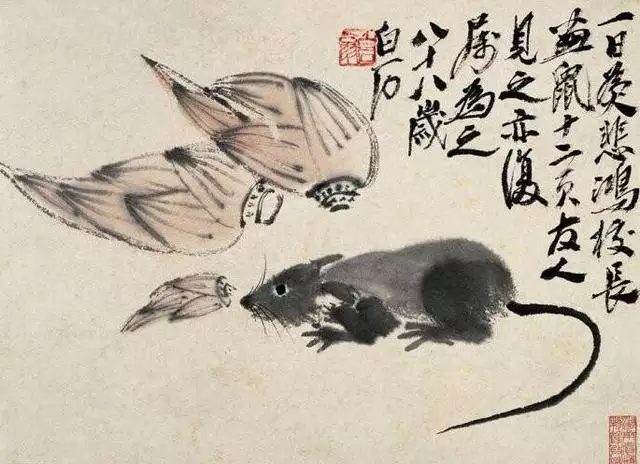 一日为悲鸿校長
画鼠十二页友人
見之亦復
属為之
八十八歲
白石